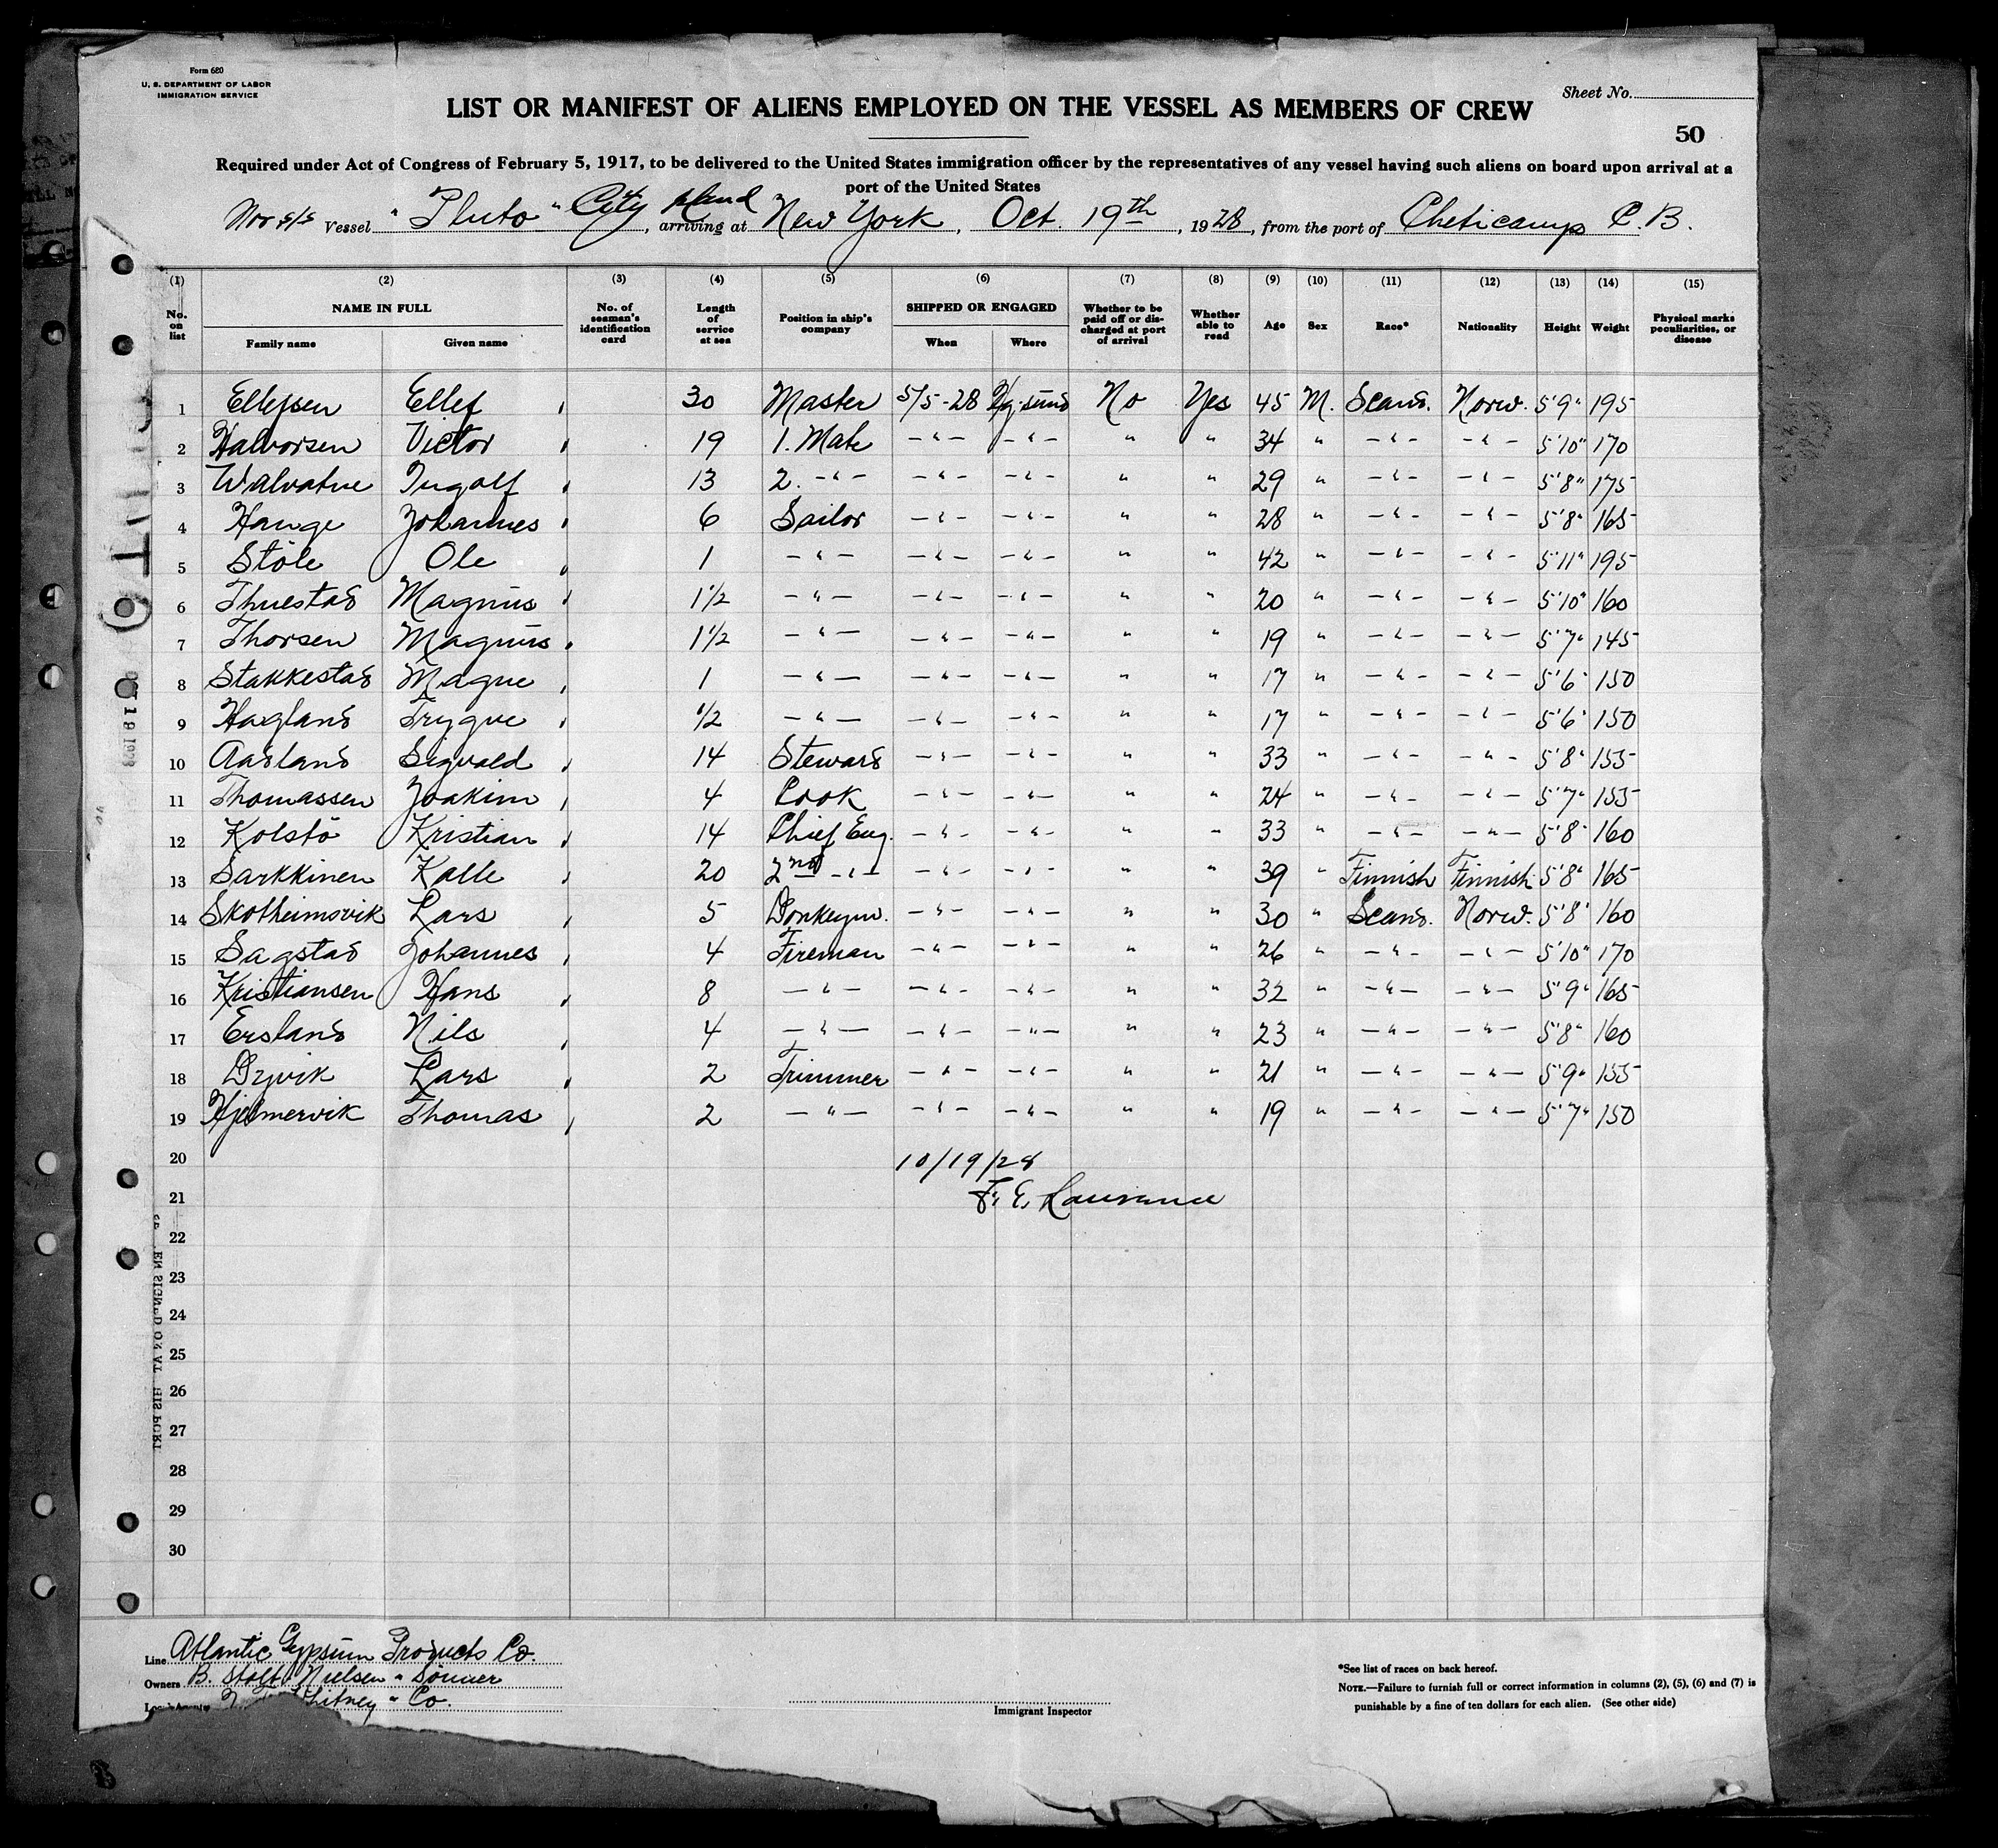 Form 680
U. S. DEPARTMENT OF LABOR
IMMIGRATION SERVICE
Sheet No.
LIST OR MANIFEST OF ALIENS EMPLOYED ON THE VESSEL AS MEMBERS OF CREW
50
Required under Act of Congress of February 5, 1917, to be delivered to the United States immigration officer by the representatives of any vessel having such aliens on board upon arrival at a
port of the United States
Nor s/s Vessel "Pluto" City Island, arriving at New York, Oct. 19th, 1928, from the port of Cheticamp C.B.
(1) (2) (3) (4) (5) (6) (7) (8) (9) (10) (11) (12) (13) (14) (15)
No. on list NAME IN FULL Family name Given name No. of seaman's identification card Length of service at sea Position in ship's company SHIPPED OR ENGAGED When Where Whether to be paid off or discharged at port of arrival Whether able to read Age Sex Race* Nationality Height Weight Physical marks peculiarities, or disease
1 Ellefsen Ellef 30 Master 5/5-28 No Yes 45 M. Scand. Norw. 5'9" 195
2 Halvorsen Victor 19 1. Mate -"- -"- " " 34 " -"- -"- 5'10" 170
3 Walvatne Ingolf 13 2. -"- -"- -"- " " 29 " -"- -"- 5'8" 175
4 Hauge Johannes 6 Sailor -"- -"- " " 28 " -"- -"- 5'8" 165
5 Stöle Ole 1 -"- -"- -"- " " 42 " -"- -"- 5'11" 195
6 Thuestad Magnus 1 1/2 -"- -"- -"- " " 20 " -"- -"- 5'10" 160
7 Thorsen Magnus 1 1/2 -"- -"- -"- " " 19 " -"- -"- 5'7" 145
8 Stakkestad Magne 1 -"- -"- -"- " " 17 " -"- -"- 5'6" 150
9 Hagland Trygve 1/2 -"- -"- -"- " " 17 " -"- -"- 5'6" 150
10 Aasland Sigvald 14 Steward -"- -"- " " 33 " -"- -"- 5'8" 155
11 Thomassen Joakim 4 Cook -"- -"- " " 24 " -"- -"- 5'7" 155
12 Kolstö Kristian 14 Chief Eng. -"- -"- " " 33 " -"- -"- 5'8" 160
13 Sarkkinen Kalle 20 2nd -"- -"- -"- " " 39 " Finnish Finnish 5'8" 165
14 Skotheimsvik Lars 5 Donkeym. -"- -"- " " 30 " Scand. Norw. 5'8" 160
15 Sagstad Johannes 4 Fireman -"- -"- " " 26 " -"- -"- 5'10" 170
16 Kristiansen Hans 8 -"- -"- -"- " " 32 " -"- -"- 5'9" 165
17 Ersland Nils 4 -"- -"- -"- " " 23 " -"- -"- 5'8" 160
18 Lars 2 Trimmer -"- -"- " " 21 " -"- -"- 5'9" 155
19 Hjelmervik Thomas 2 -"- -"- -"- " " 19 " -"- -"- 5'7" 150
20 10/19/28
21 F. E. Laurance
22
23
24
25
26
27
28
29
30
Line Atlantic Gypsum Products Co.
Owners B. Stolt Nielsen " Sönner
Whitney " Co.
Immigrant Inspector
*See list of races on back hereof.
NOTE.—Failure to furnish full or correct information in columns (2), (5), (6) and (7) is
punishable by a fine of ten dollars for each alien. (See other side)